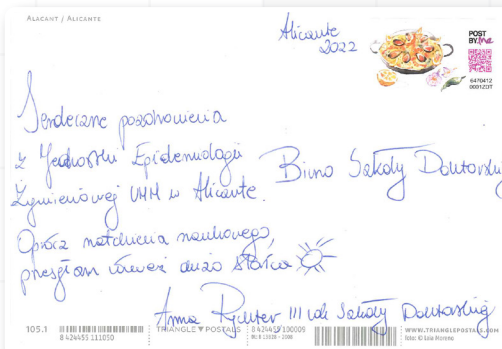 ALACANT / ALICANTE
Alicante
2022
POST
BY.me
6476412
0001ZDT
Serdeczne pozdrowienia
z Jednostki Epidemiologii
Żywieniowej UMH w Alicante.
Biuro Szkoły Doktorskiej
Oprócz natchnienia naukowego,
przesyłam również dużo słońca
Anna Rychter III rok Szkoły Doktorskiej
105.1
8 424455 111050
TRIANGLE ▼ POSTALS
8 424455 100009
WWW.TRIANGLEPOSTALS.COM
foto: © Lola Moreno